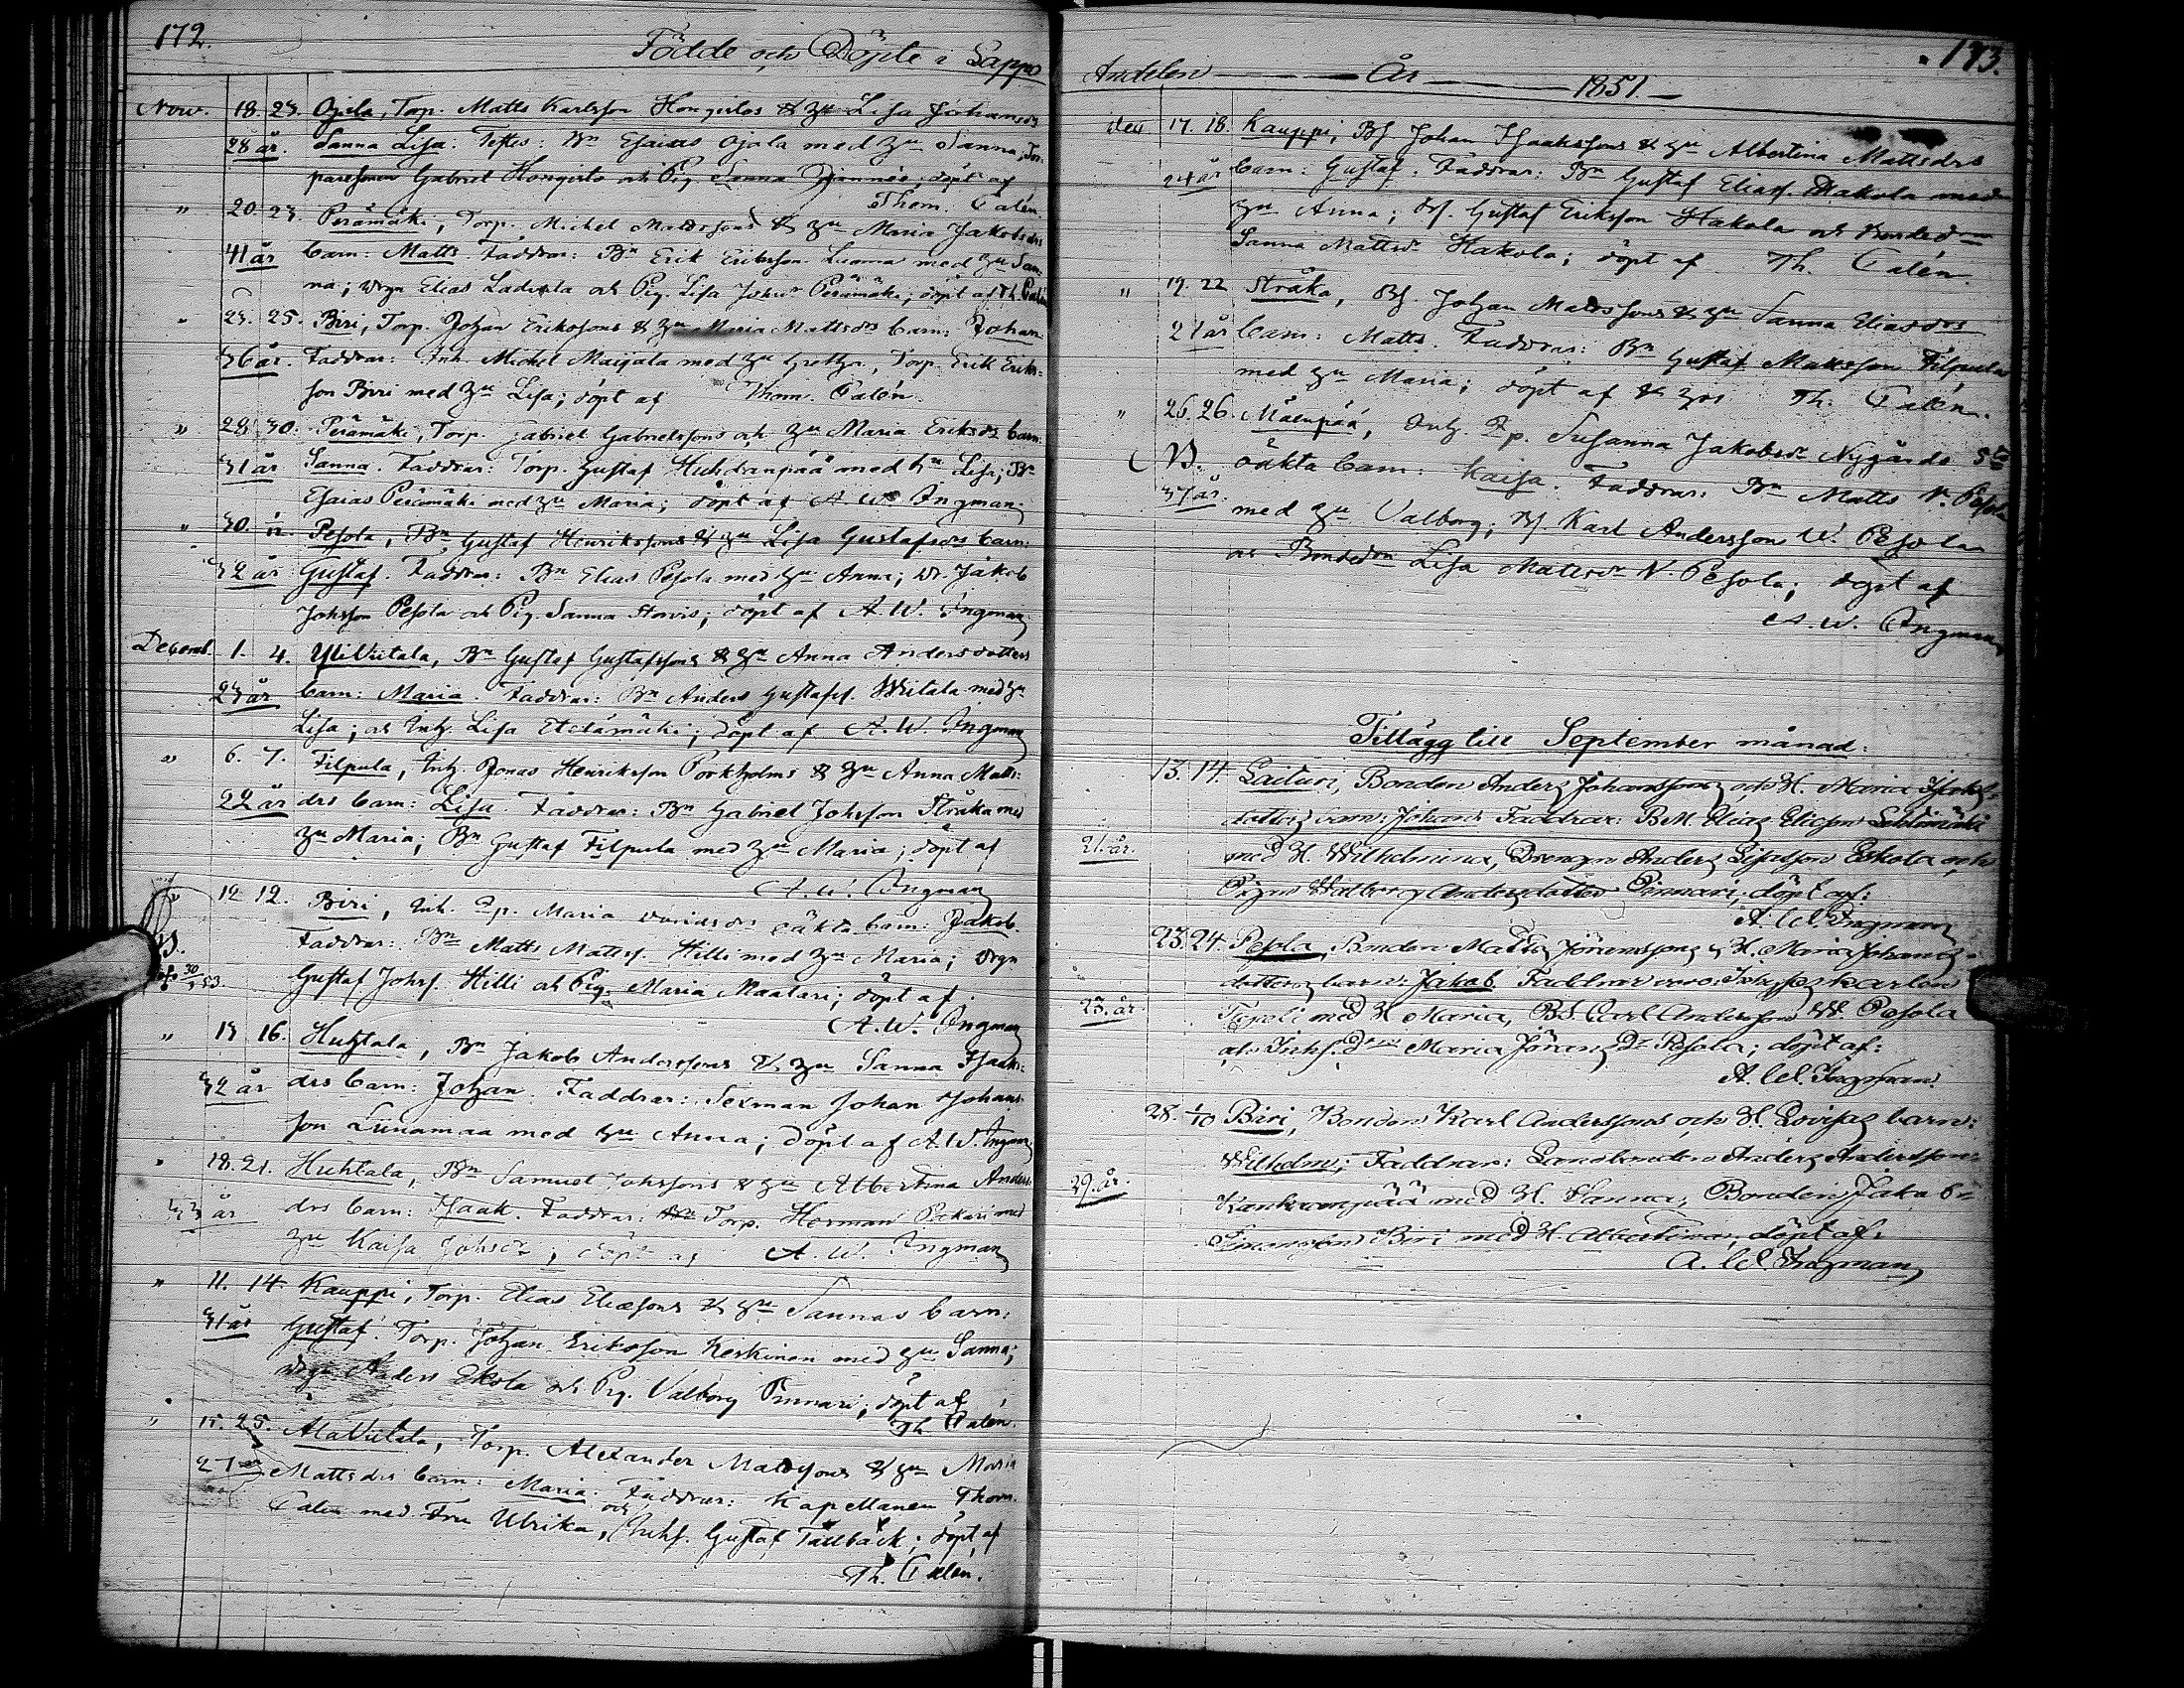 172.
Födde och Döpte i Lappo
Nov. 18. 23. Ojala, Torp. Matts Karlsson Hongistos & hu Lisa Johansdrs
28 år. Sanna Lisa. Testes: Bn Esaias Ojala med hu Sanna, Tor-
paresonen Gabriel Hongisto och Pig. Sanna döpt af
Thom. Calén.
" 20. 23. Perämäki, Torp. Michel Mattssons & hu Maria Jakobsdrs
41 år barn: Matts. Faddrar: Bn Erik Eriksson Luoma med hu San-
na; drgn Elias Ladvala och Pig. Lisa Johsdr Perämäki; döpt af Th. Calén
" 23. 25. Biri, Torp. Johan Erikssons & hu Maria Mattsdrs barn: Johan
36 år. Faddrar: Inh. Michel Maijala med hu Greta, Torp. Erik Eriks-
son Biri med hu Lisa; döpt af Thom. Calén.
" 28. 30. Perämäki, Torp. Gabriel Gabrielssons och hu Maria Eriksdrs barn:
31 år Sanna. Faddrar: Torp. Gustaf Huhdanpää med hu Lisa; Bn
Esaias Perämäki med hu Maria; döpt af A. W. Ingman
" 30. Pesola, Bn Gustaf Henrikssons & hu Lisa Gustafsdrs barn:
32 år Gustaf. Faddrar: Bn Elias Pesola med hu Anna; dr. Jakob
Johsson Pesola och Pig. Sanna; döpt af A. W. Ingman
Decemb. 1. 4. YliViitala, Bn Gustaf Gustafssons & hu Anna Andersdotters
23 år barn: Maria. Faddrar: Bn Anders Gustafss. Wiitala med hu
Lisa; och Inh. Lisa Etelämäki; döpt af A. W. Ingman
" 6. 7. Filpula, Inh. Jonas Henriksson Porkholms & hu Anna Matts-
22 år drs barn: Lisa. Faddrar: Bn Gabriel Johsson Stråka med
hu Maria; Bn Gustaf Filpula med hu Maria; döpt af
A. W. Ingman
12. 12. Biri, Inh. Qp. Maria Davidsdrs oäkta barn: Jakob.
Faddrar: Bn Matts Mattss. Hilli med hu Maria; drgn
Gustaf Johss. Hilli och Pig. Maria Maalari; döpt af
A. W. Ingman
" 13 16. Huhtala, Bn Jakob Anderssons & hu Sanna Isaaks-
32 år drs barn: Johan. Faddrar: Sexman Johan Johans-
son Lunamaa med hu Anna; döpt af A. W. Ingman
" 18. 21. Huhtala, Bn Samuel Johssons & hu Albertina Anders-
år drs barn: Isaak. Faddrar: Torp. Herman Pekari med
hu Kaisa Johsdr; döpt af A. W. Ingman
" 11. 14. Kauppi, Torp. Elias Eliæsons & hu Sannas barn:
31 år Gustaf. Torp. Johan Eriksson Keskinen med hu Sanna;
drgn Anders Ekola och Pig. Valborg Pinnari; döpt af
Th. Calén.
" 15. 25. AlaViitala, Torp. Alexander Mattssons & hu Maria
27 år Mattsdrs barn: Maria. Faddrar: Kapellanen Thom.
Calén med Fru Ulrika, och Inhs. Gustaf Tallbäck; döpt af
Th. Calén.
173.
Andelen — År — 1851. —
Dec 17. 18. Kauppi, Bs Johan Isaakssons & hu Albertina Mattsdrs
24 år barn: Gustaf. Faddrar: Bn Gustaf Eliass. Hakola med
hu Anna; Bs. Gustaf Eriksson Hakola och Bondedn
Sanna Mattsdr Hakola; döpt af Th. Calén
" 19. 22 Stråka, Bs. Johan Mattssons & hu Sanna Eliasdrs
21 år barn: Matts. Faddrar: Bn Gustaf Matsson Filpula
med hu Maria; döpt af Th. Calén.
" 26. 26. Mäenpää, Inh. Qp. Susanna Jakobsdr Nygårds
37 år. oäkta barn: Kaisa. Faddrar: Bn Matts N. Pesola
med hu Valborg; Bs. Karl Andersson W. Pesola
och Bondedn Lisa Mattsdr N. Pesola; döpt af
A. W. Ingman
Tillägg till September månad.
13. 14. Laituri, Bonden Anders Johanssons och H. Maria
dotters barn: Johan. Faddrar: B.M. Elias Elieson
21. år. med H. Wilhelmina, Drengen Anders Eskola och
Pigan Walborg Andersdotter Pinnari; döpt af:
A. W. Ingman
23. 24. Pesola, Bonden Matts Jöranssons & H. Maria Johans-
dotters barn: Jakob. Faddrar voro:
23. år. med H Maria, BS. Carl Andersson W. Pesola
och Inhs. Dr Maria Jörans Dr Pesola; döpt af:
A. W. Ingman.
28. 1/10 Biri, Bonden Karl Anderssons och H. Lovisas barn:
Wilhelm; Faddrar: Landbonden Anders Andersson
29. år. Kankaanpää med H. Sanna; Bonden Jakob
Biri med H. Albertina, döpt af:
A. W. Ingman